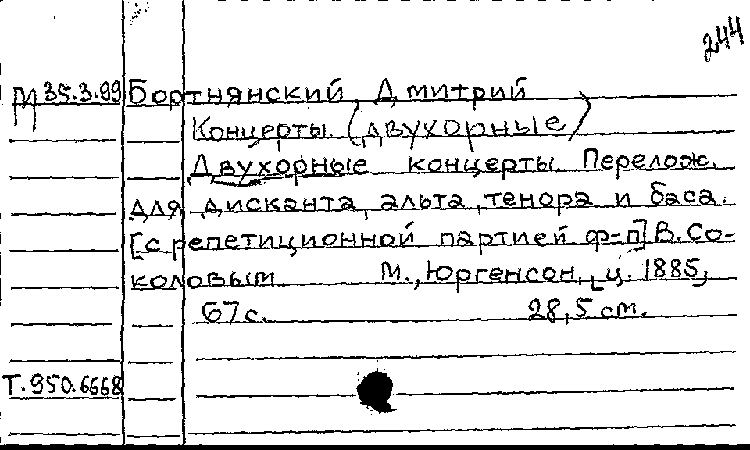 244
М 35.3.99 Бортнянский, Дмитрий
Концерты. (двухорные)
Двухорные концерты. Перелож.
для дисканта, альта, тенора и баса.
[с репетиционной партией ф-п] В. Со-
коловым М., Юргенсон, ц. 1885,
67 с. 28,5 см.
Т. 950.6668